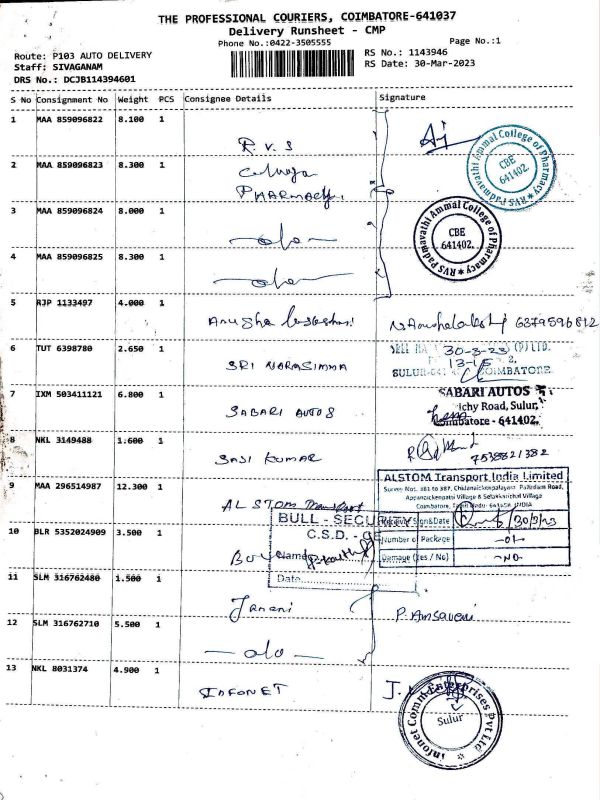 THE PROFESSIONAL COURIERS, COIMBATORE-641037
Delivery Runsheet - CMP
Phone No.:0422-3505555
Page No.:1
Route: P103 AUTO DELIVERY
RS No.: 1143946
Staff: SIVAGANAM
RS Date: 30-Mar-2023
DRS No.: DCJB114394601
S No Consignment No Weight PCS Consignee Details Signature
1 MAA 859096822 8.100 1
R.V.S
2 MAA 859096823 8.300 1
PHARMACY
RVS Padmavathi Ammal College of Pharmacy
CBE
641402.
3 MAA 859096824 8.000 1
RVS Padmavathi Ammal College of Pharmacy
CBE
641402.
4 MAA 859096825 8.300 1
5 RJP 1133497 4.000 1
Anusha
6 TUT 6398780 2.650 1
SRI NARASIMMA
30-3-23 (P) LTD.
13-15
SULUR COIMBATORE
7 IXM 503411121 6.800 1
SABARI AUTOS
SABARI AUTOS
ichy Road, Sulur,
Coimbatore - 641402.
8 NKL 3149488 1.600 1
SASI KUMAR
7538821382
9 MAA 296514987 12.300 1
ALSTOM Transport
ALSTOM Transport India Limited
Survey Nos. 381 to 387, Chidanaickenpalayam Palladam Road,
Coimbatore, INDIA
Receiver Sign&Date 30/3/23
Number of Package -01-
Damage (Yes / No) -NO-
BULL - SECURITY
C.S.D. -
Name
Date
10 BLR 5352024909 3.500 1
11 SLM 316762480 1.500 1
Janani
P. Amsaveni
12 SLM 316762710 5.500 1
13 NKL 8031374 4.900 1
INFONET
J.
Infonet Comm Enterprises Pvt Ltd
Sulur